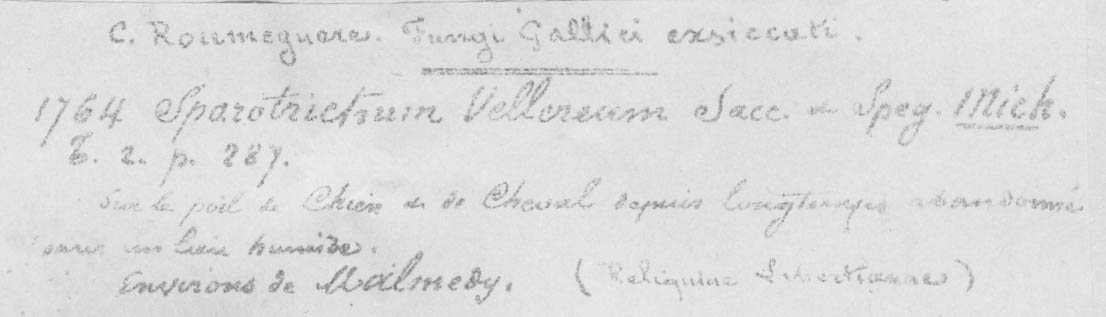 C. Roumeguere. Fungi Gallici exsiccati.
1764 Sporotrichum Vellereum Sacc. & Speg. Mich.
T. 2. p. 287.
Sur le poil de Chien et de Cheval depuis longtemps abandonné
dans un lieu humide.
Environs de Malmedy. (Reliquiae Libertianae)